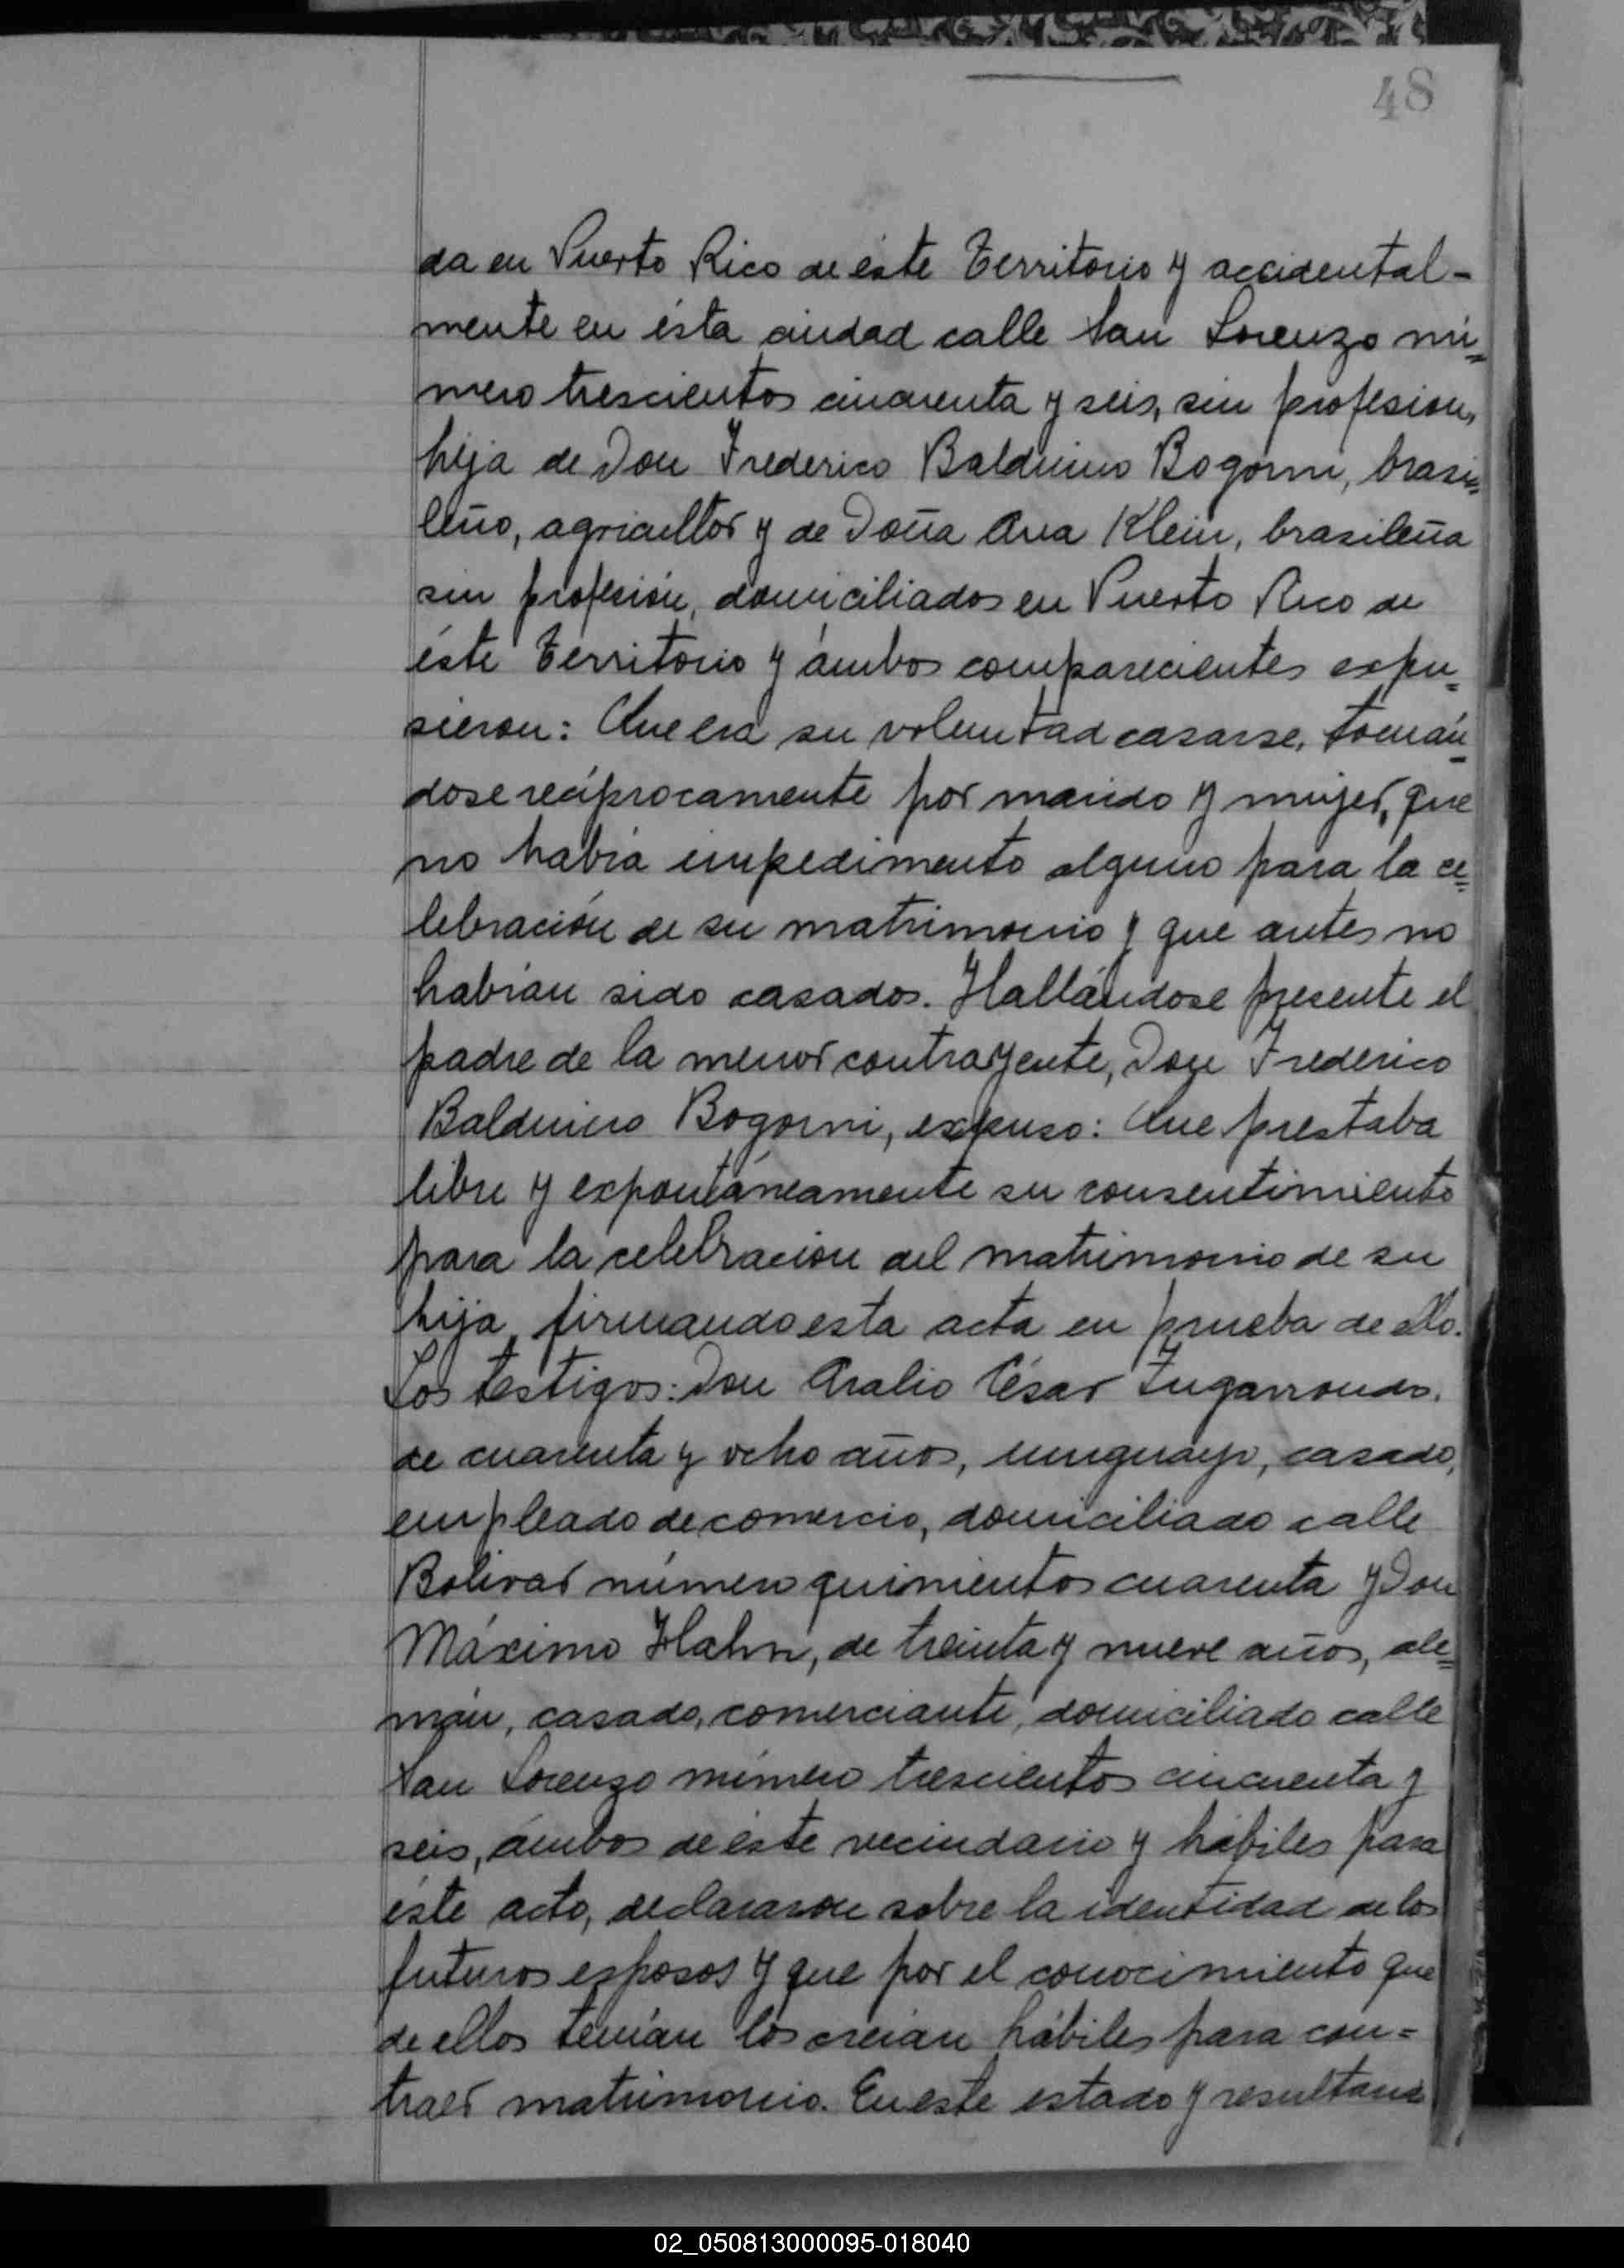 48
da en Puerto Rico de éste Territorio y accidental-
mente en ésta ciudad calle San Lorenzo nú=
mero trescientos cincuenta y seis, sin profesion,
hija de Don Frederico Balduino Bogorni, brasi=
leño, agricultor y de Doña Ana Klein, brasileña
sin profesión, domiciliados en Puerto Rico de
éste Territorio y ámbos comparecientes expu=
sieron: Que era su voluntad casarse, tomán=
dose recíprocamente por marido y mujer, que
no había impedimento alguno para la ce=
lebración de su matrimonio y que antes no
habían sido casados. Hallándose presente el
padre de la menor contrayente, Don Frederico
Balduino Bogorni, expuso: Que prestaba
libre y expontáneamente su consentimiento
para la celebracion del matrimonio de su
hija, firmando esta acta en prueba de ello.
Los testigos: Don Aralio César Zugarrondo,
de cuarenta y ocho años, uruguayo, casado,
empleado de comercio, domiciliado calle
Bolivar número quinientos cuarenta y Don
Máximo Hahn, de treinta y nueve años, ale=
mán, casado, comerciante, domiciliado calle
San Lorenzo número trescientos cincuenta y
seis, ámbos de éste vecindario y hábiles para
éste acto, declararon sobre la identidad de los
futuros esposos y que por el conocimiento que
de ellos tenían los creían hábiles para con=
traer matrimonio. En este estado y resultand
02_050813000095-018040